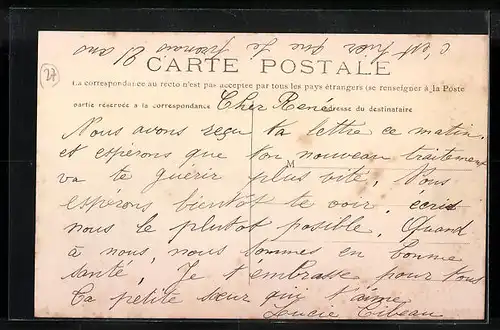 c'est hier que je prenais 21 ans
27
CARTE POSTALE
La correspondance au recto n'est pas acceptée par tous les pays étrangers (se renseigner à la Poste
partie réservée a la correspondance
adresse du destinataire
M
Cher René
Nous avons reçu ta lettre ce matin,
et espérons que ton nouveau traitement
va te guérir plus vite, Nous
espérons bientôt te voir. ecris
nous le plutot posible. Quand
à nous, nous sommes en bonne
santé, Je t'embrasse pour tous
Ta petite sœur qui t'aime
Lucie Tibeau